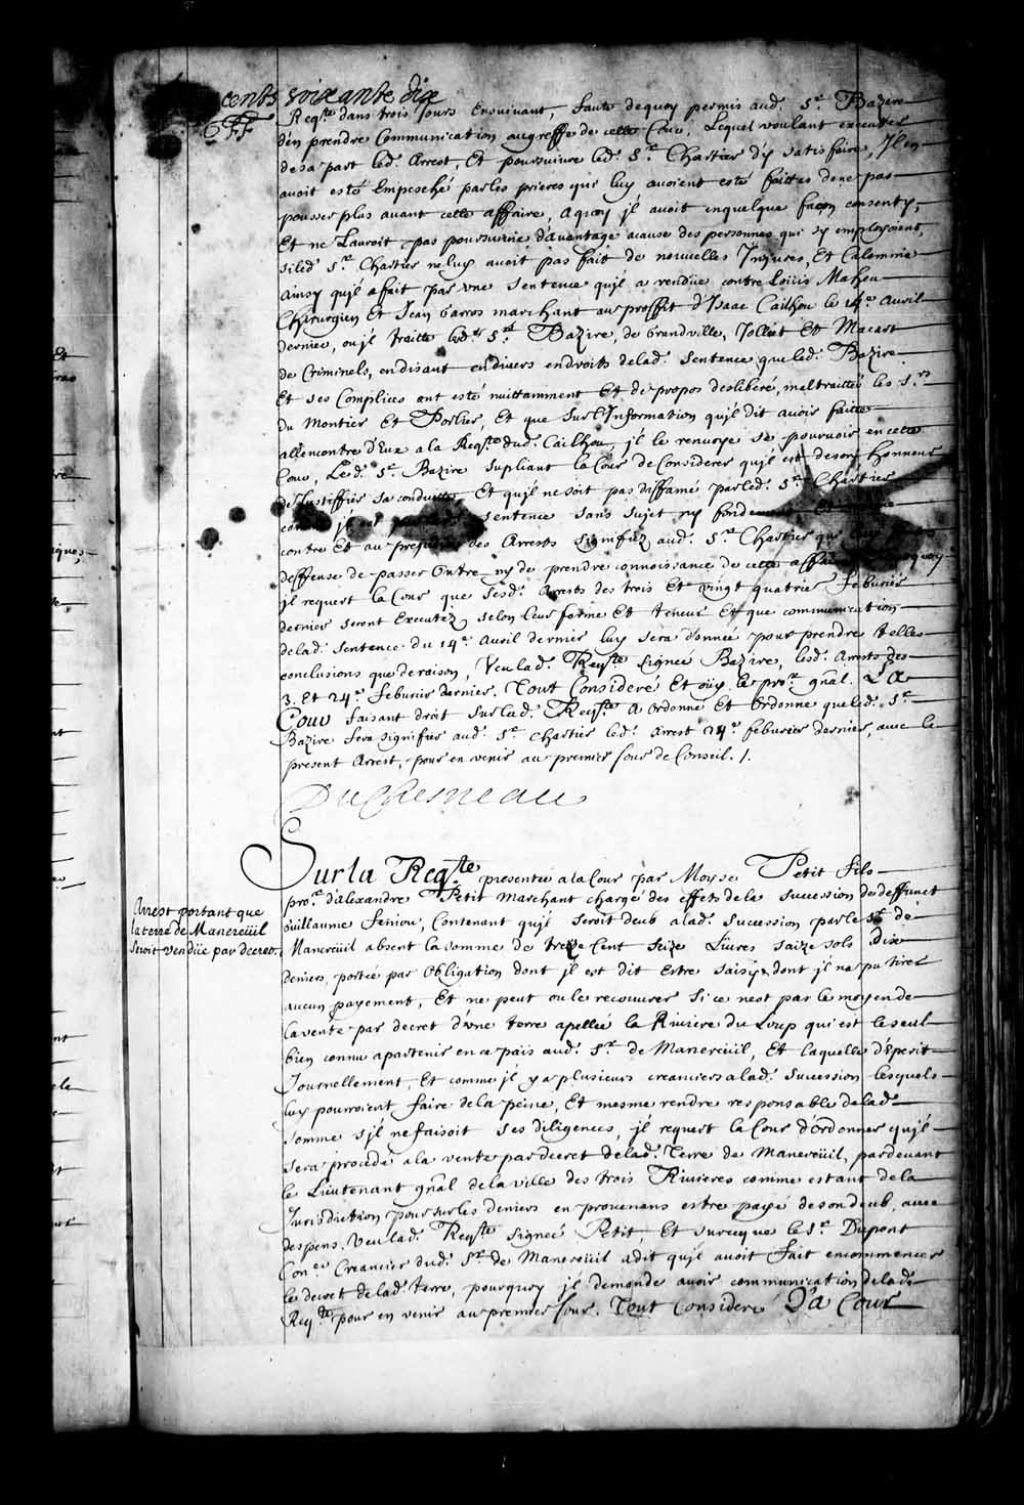 cents soixante dix
Reqte dans trois jours Ensuivant, faute dequoy permis aud. Sr. Bazire
d'en prendre Communication augreffe de cette Cour, Lequel voulant executer
desa part led. Arrest, Et poursuivre led. Sr. Chartier d'y satisfaire, Il en
avoit esté Empesché parles prieres qui luy avoient esté faittes dene pas
pousser plus avant cette affaire, aquoy jl avoit enquelque façon consenty,
Et ne Lauroit pas poursuivie d'avantage acause des personnes qui s'y employoient,
siled. Sr. Chartier neluy avoit pas fait de nouvelles Injures, Et Calomnie
ainsy qujl a fait par vne sentence qujl a rendüe contre Loüis Mahou
Chirurgien Et Jean Garros marchant au proffit d'Isaac Cailhou le 14e. Avril
dernier, ou jl traitte lesd. Srs. Bazire, de Grandville, Jolliet Et Macart
de Criminels, en disant endivers endroits delad. sentence que led. Bazire
Et ses Complices ont esté nuittamment Et de propos desliberé, maltraitter les Srs.
du Montier Et Porlier, Et que sur l'Information qujl dit avoir faitte
allencontre d'Eux a la Reqte dud. Cailhou, jl le renvoye se pourvoir en cette
Cour, Led. Sr. Bazire supliant la Cour de Considerer qujl est deson honneur
de Justiffier sa conduitte, Et qujl nesoit pas diffamé parled. Sr. Chartier
sentence sans sujet ny fondement
contre Et au prejudice des Arrests signifiez aud. Sr. Chartier qui
deffense de passer outre ny de prendre connoissance de cette affaire
jl requert la Cour que sesd. Arrests des trois Et vingt quatrie feburier
dernier seront Executéz selon leur forme Et teneur Et que communication
delad. sentence du 14e. Avril dernier luy sera donnée pour prendre telles
conclusions que deraison, Veu lad. Reqte signée Bazire, lesd. Arrests des
3. Et 24e. feburier dernier. Tout Consideré Et oüy le pror. gnal. La
Cour faisant droit sur lad. Reqte a ordonné Et ordonne que led. Sr.
Bazire fera signifier aud. Sr. Chartier led. Arrest 24e. feburier dernier, avec le
present Arrest, pour en venir au premier jour de Conseil. /.
DuChesneau
Arrest portant que
la terre de Manereüil
seroit vendüe par decret.
Sur la Reqte presentée a la Cour par Moyse Petit fils
pror. d'alexandre Petit Marchant chargé des effets de la succession de deffunct
Guillaume feniou, Contenant qujl seroit deub a lad. succession par le Sr. de
Manereüil absent la somme de treize Cent seize Livres saize sols dix
deniers portée par obligation dont jl est dit Estre saisy, dont jl na pu tirer
aucun payement, Et ne peut ou le recouvrer si ce nest par le moyen de
la vente par decret d'une terre apellée la Riviere du Loup qui est le seul
bien connu apartenir en ce païs aud. Sr. de Manereüil, Et laquelle déperit
Journellement, Et comme jl y a plusieurs creanciers a lad. succession lesquels
luy pourroient faire de la peine, Et mesme rendre responsable delad.
somme s'jl ne faisoit ses diligences, jl requert la Cour d'ordonner qujl
sera procedé a la vente par decret delad. terre de Manereüil, pardevant
le Lieutenant gnal de la ville des trois Rivieres comme estant de la
Jurisdiction pour sur les deniers en provenans estre payé de son deub, avec
despens. Veu lad. Reqte signée Petit, Et surceque le Sr. Dupont
Coner. Creancier dud. Sr. de Manereüil a dit qujl avoit fait encommencer
le decret de lad. terre, pourquoy jl demande avoir communication de lad.
Reqte pour en venir au premier jour. Tout Consideré La Cour